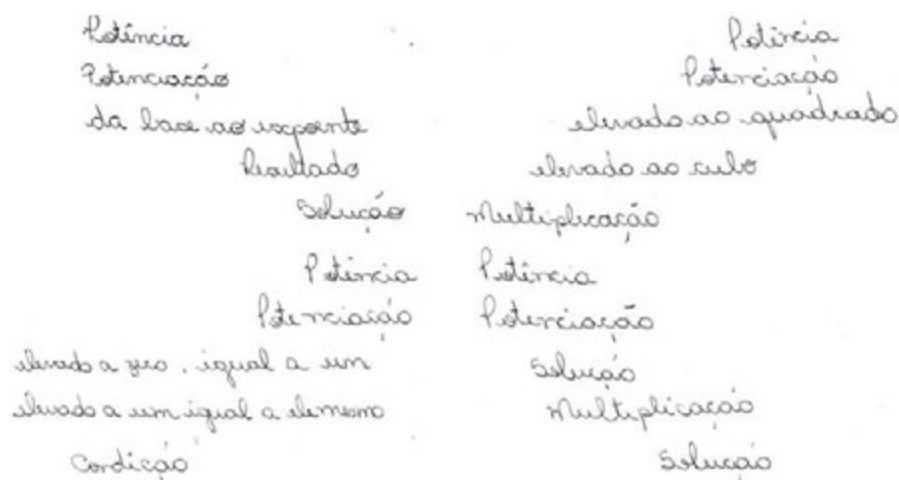 Potência
Potenciação
da base ao expoente
Resultado
Solução
Potência
Potenciação
elevado a zero, igual a um
elevado a um igual a ele mesmo
Condição
Potência
Potenciação
elevado ao quadrado
elevado ao cubo
Multiplicação
Potência
Potenciação
Solução
Multiplicação
Solução